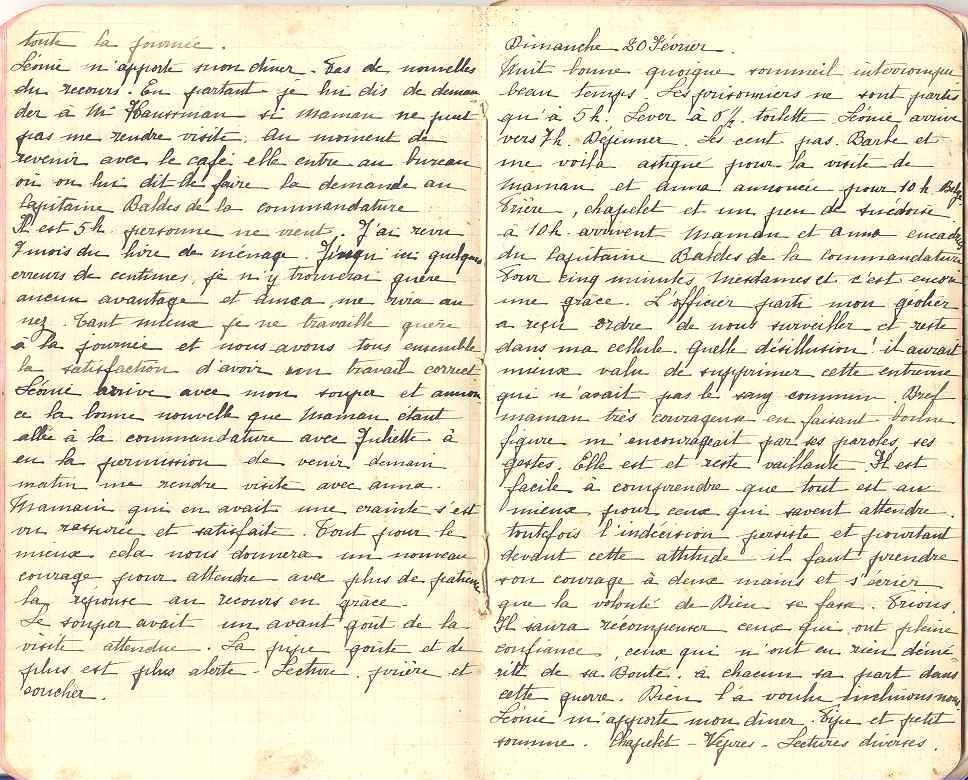 toute la journée.
Léonie m'apporte mon dîner. Pas de nouvelles
du recours. En partant je lui dis de deman
der à Mr Haussman si Maman ne peut
pas me rendre visite. Au moment de
revenir avec le café elle entre au bureau
où on lui dit de faire la demande au
Capitaine Baldes de la commandature
Il est 5h personne ne vient. J'ai revu
7 mois du livre de ménage. Jusqu'ici quelques
erreurs de centimes, je n'y trouverai guère
aucun avantage et Anna me rira au
nez. Tant mieux je ne travaille guère
à la journée et nous avons tous ensemble
la satisfaction d'avoir un travail correct
Léonie arrive avec mon souper et annon
ce la bonne nouvelle que Maman étant
allée à la commandature avec Juliette à
eu la permission de venir demain
matin me rendre visite avec anna.
Mamain qui en avait une crainte s'est
vu rassurée et satisfaite. Tout pour le
mieux cela nous donnera un nouveau
courage pour attendre avec plus de patience
la réponse au recours en grâce.
Le souper avait un avant goût de la
visite attendue. La pipe goûte et de
plus est plus alerte - Lecture, prière et
coucher.
Dimanche 20 Février.
Nuit bonne quoique sommeil interrompu
beau temps. Les prisonniers ne sont partis
qu'à 5h. Lever à 6½ toilette Léonie arrive
vers 7h. Déjeuner. Les cent pas. Barbe et
me voilà astiqué pour la visite de
Maman et anna annoncée pour 10 h Belge
Prière, chapelet et un peu de suédoise.
à 10h. arrivent Maman et anna encadrées
du Capitaine Baldes de la commandature
Pour cinq minutes, Mesdames et c'est encore
une grâce. L'officier parti mon geôlier
a reçu ordre de nous surveiller et reste
dans ma cellule. Quelle désillusion! il aurait
mieux valu de supprimer cette entrevue
qui n'avait pas le sang commun. Bref
maman très courageuse en faisant bonne
figure m'encourageait par ses paroles, ses
gestes. Elle est et reste vaillante. Il est
facile à comprendre que tout est au
mieux pour ceux qui savent attendre.
toutefois l'indécision persiste et pourtant
devant cette attitude il faut prendre
son courage à deux mains et s'écrier
que la volonté de Dieu se fasse. Prions.
Il saura récompenser ceux qui ont pleine
confiance, ceux qui n'ont en rien démé-
rité de sa Bonté. à chacun sa part dans
cette guerre. Dieu l'a voulu inclinons nous
Léonie m'apporte mon diner. Pipe et petit
somme. Chapelet - Vêpres - Lectures diverses.